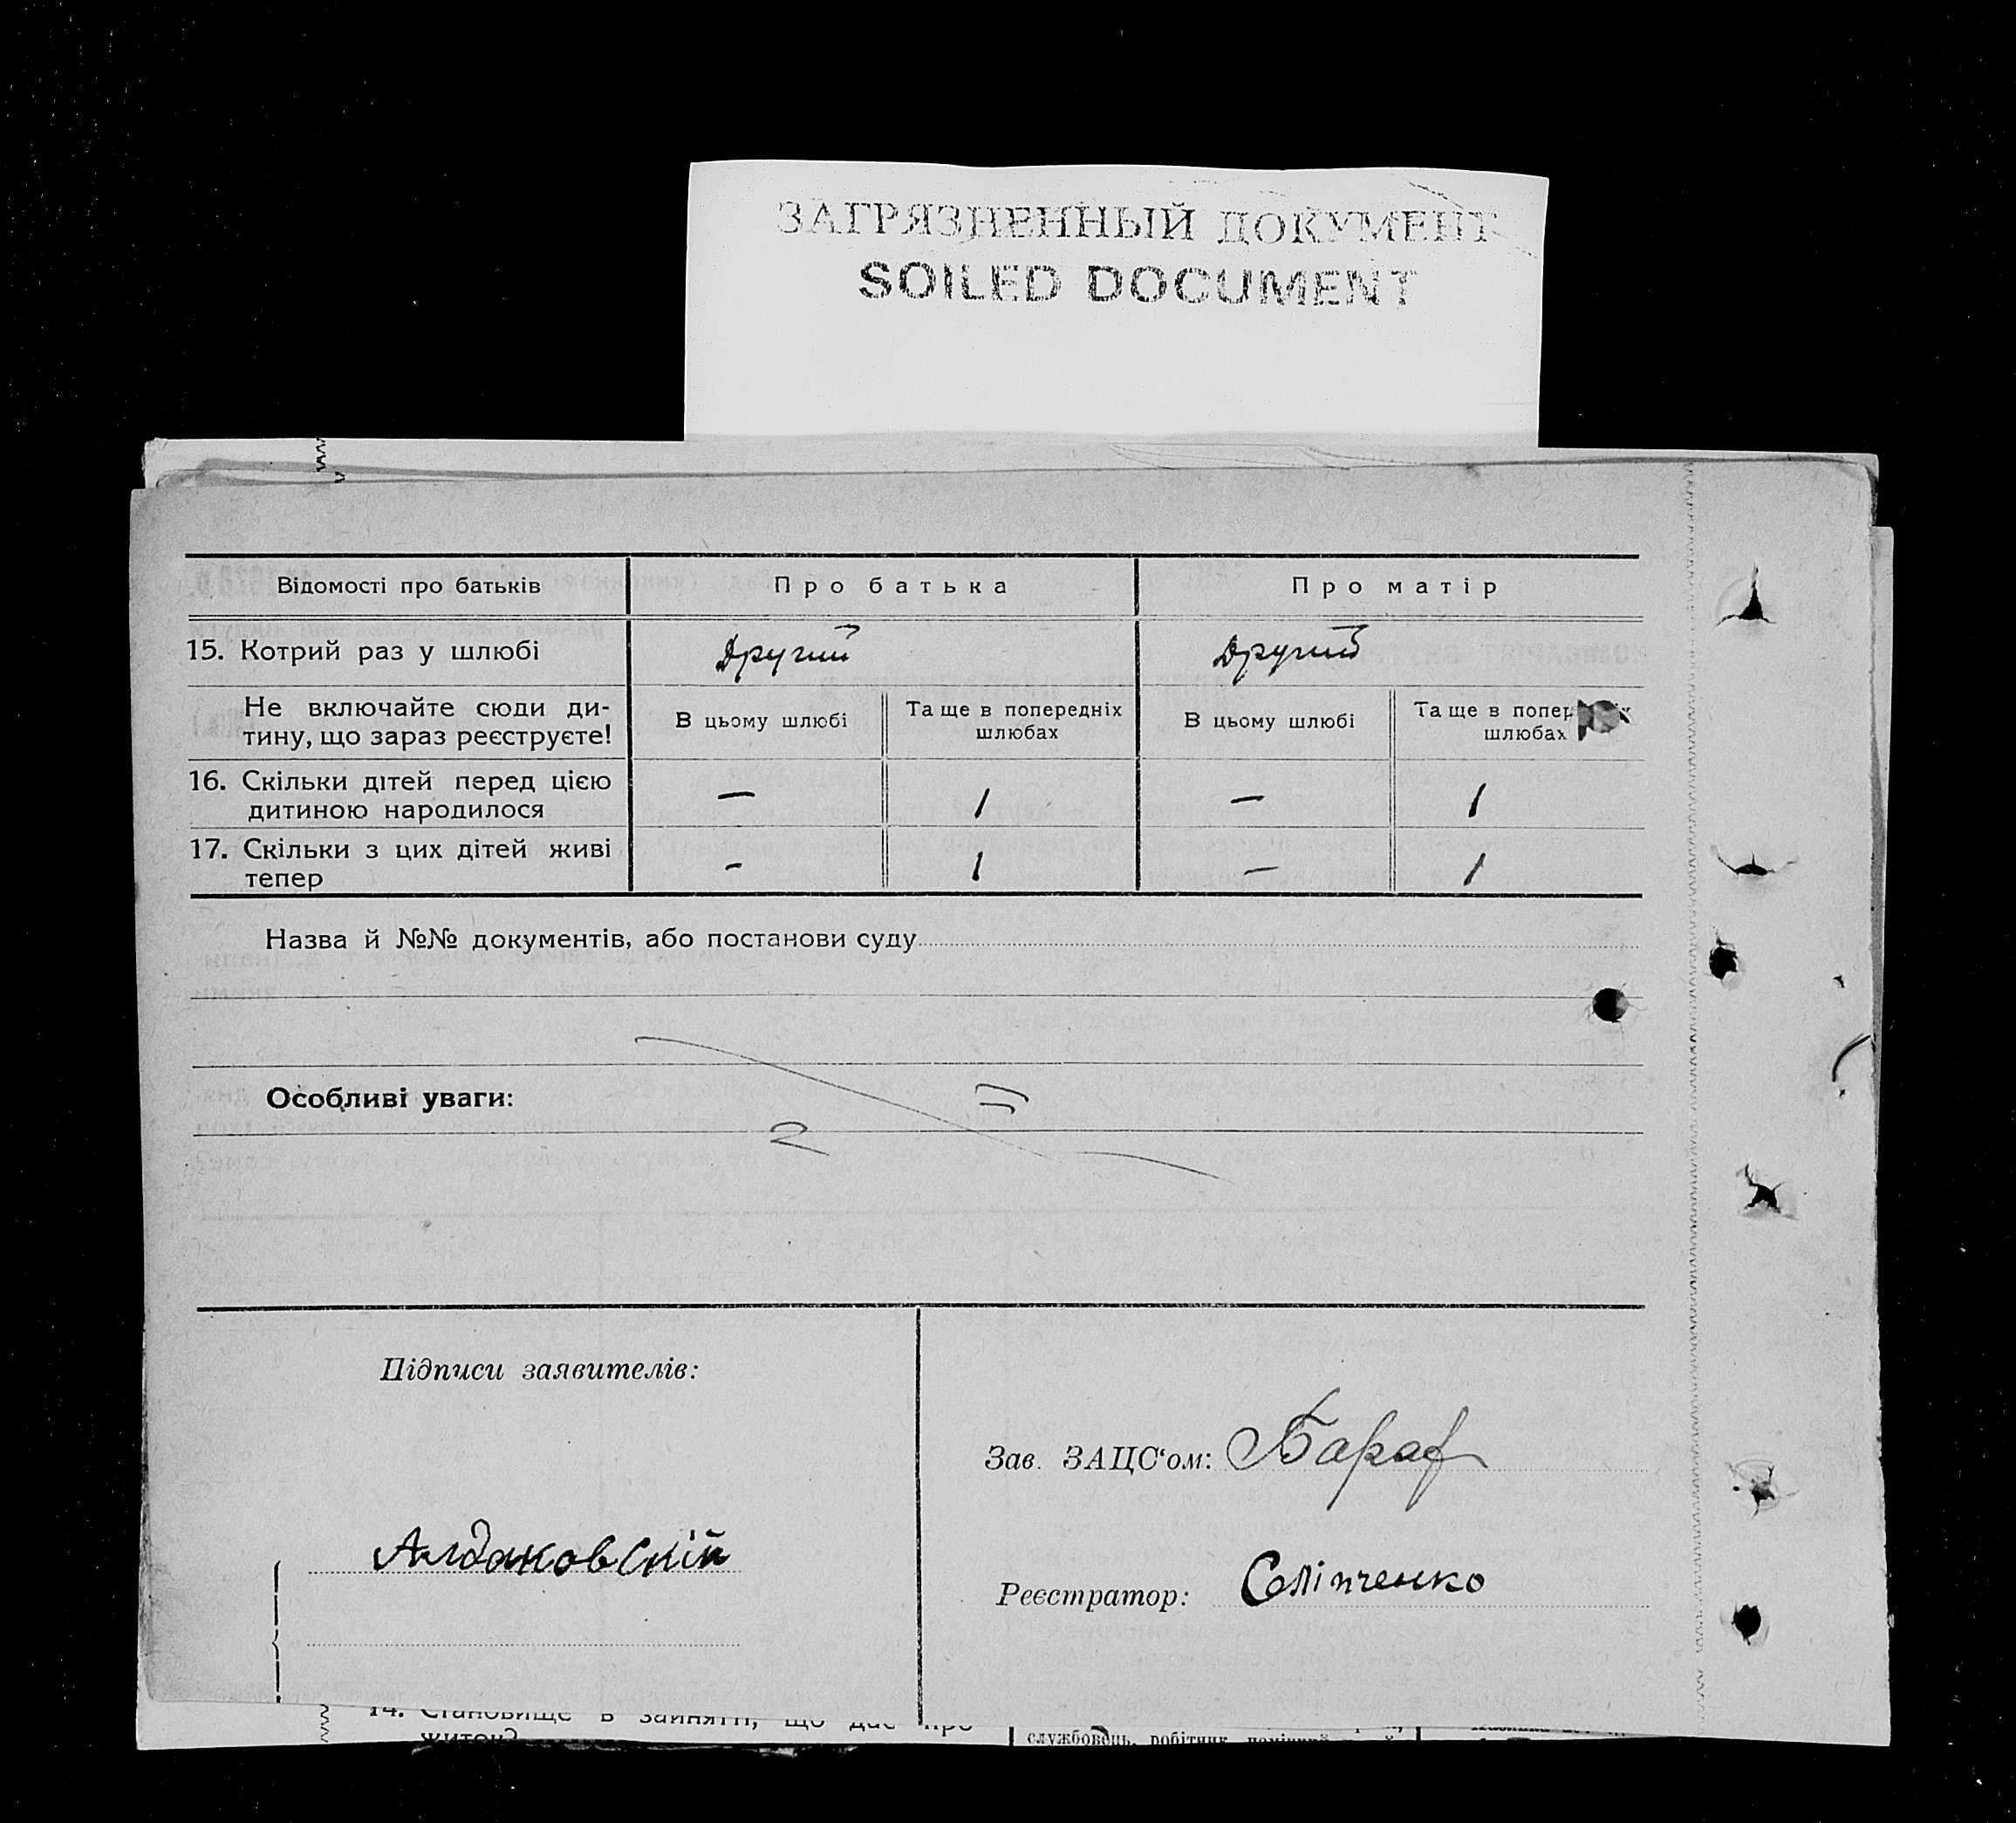 ЗАГРЯЗНЕННЫЙ ДОКУМЕНТ
SOILED DOCUMENT
Відомості про батьків
Про батька
Про матір
15. Котрий раз у шлюбі
Другий
Другий
Не включайте сюди ди-
тину, що зараз реєструєте!
В цьому шлюбі
Та ще в попередніх
шлюбах
В цьому шлюбі
Та ще в
шлюбах
16. Скільки дітей перед цією
дитиною народилося
—
1
—
1
17. Скільки з цих дітей живі
тепер
-
1
—
1
Назва й №№ документів, або постанови суду
Особливі уваги:
Підписи заявителів:
Зав. ЗАЦС'ом:
Реєстратор: Соліпченко
14. Становище в занятті, що дає про
житок?
службовець, робітник,